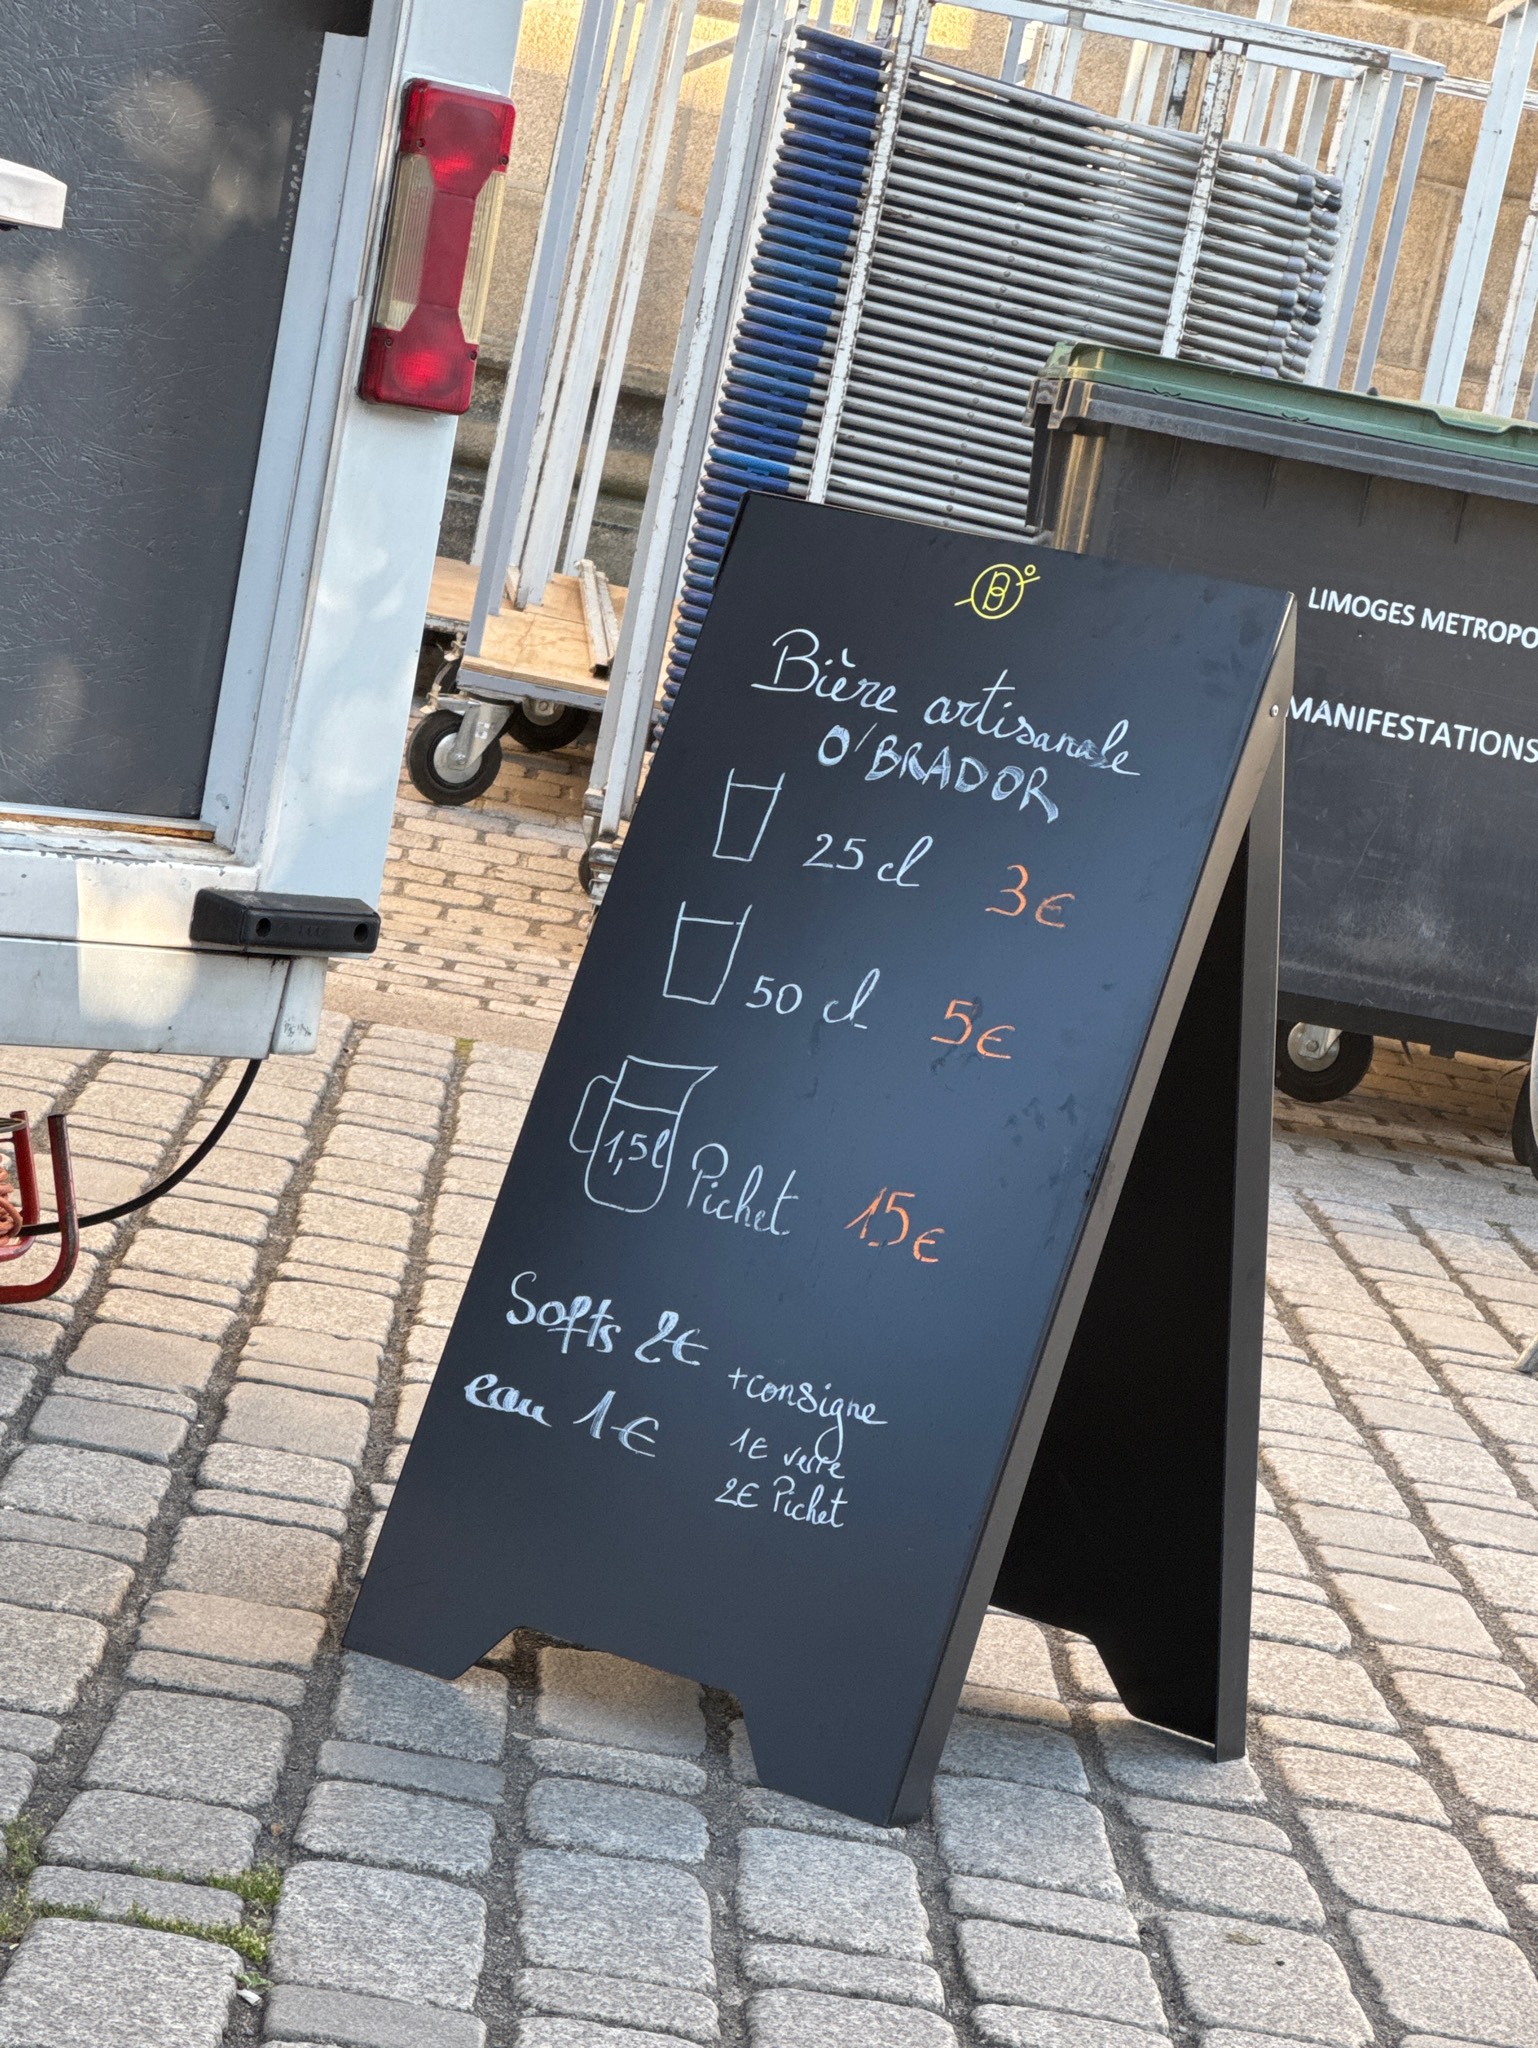 B
Bière artisanale
O'BRADOR
25 cl 3€
50 cl 5€
1,5l Pichet 15€
Softs 2€
eau 1€
+consigne
1€ verre
2€ Pichet
LIMOGES METROPO
MANIFESTATIONS